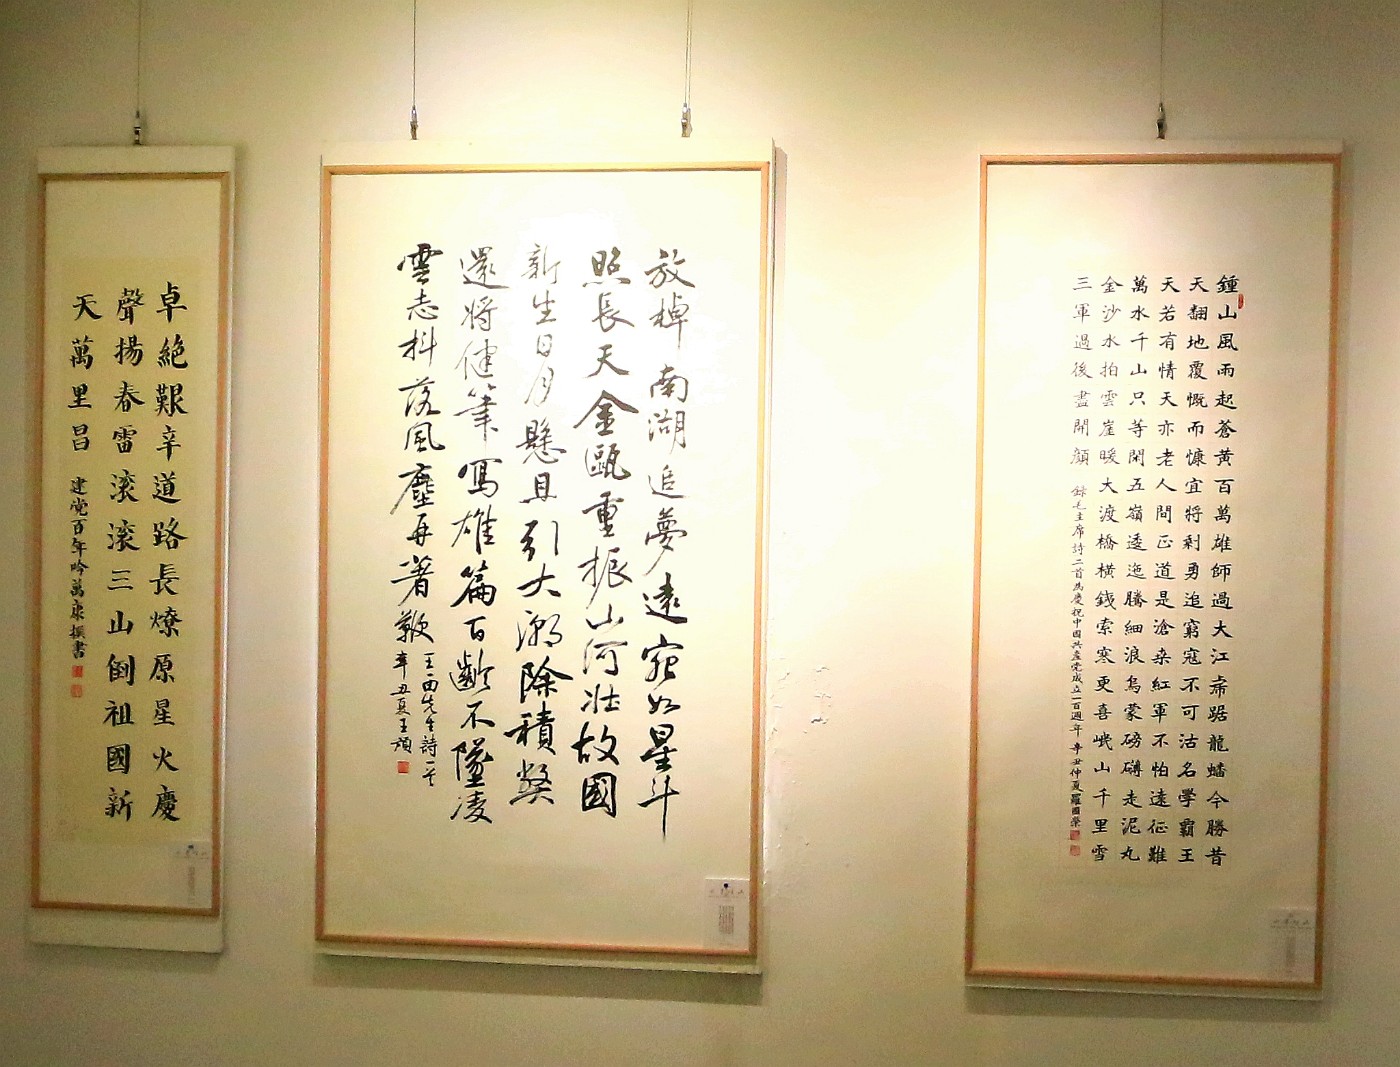 卓絶艱辛道路長燎原星火慶
聲揚春雷滚滚三山倒祖國新
天萬里昌
建党百年吟萬康撰書
放棹南湖追夢遠宛如星斗
照長天金甌重振山河壯故國
新生日月懸且引大潮除積弊
還將健筆寫雄篇百齡不墜凌
雲志抖落風塵再著鞭
辛丑夏王頑
鍾山風雨起蒼黃百萬雄師過大江虎踞龍蟠今勝昔
天翻地覆慨而慷宜將剩勇追窮寇不可沽名學霸王
天若有情天亦老人間正道是滄桑紅軍不怕遠征難
萬水千山只等閑五嶺逶迤騰細浪烏蒙磅礴走泥丸
金沙水拍雲崖暖大渡橋橫鐵索寒更喜岷山千里雪
三軍過後盡開顔
錄毛主席詩二首為慶祝中国共產党成立一百週年辛丑仲夏羅國榮